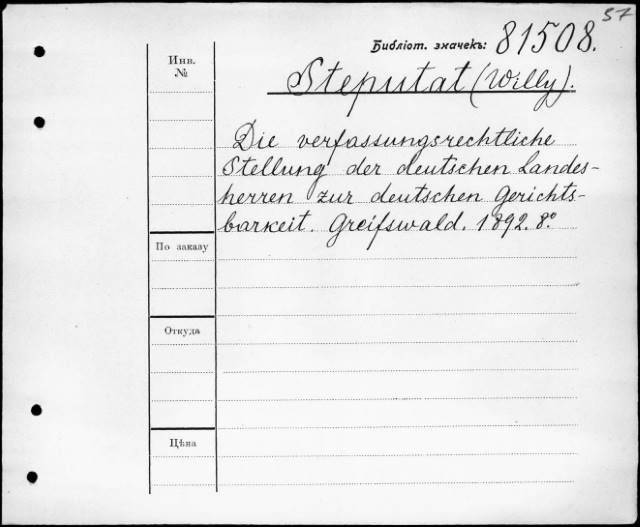 57
Библіот. значекъ: 81508.
Инв.
№
Steputat (Willy).
Die verfassungsrechtliche
Stellung der deutschen Landes-
herren zur deutschen Gerichts-
barkeit. Greifswald. 1892. 8°.
По заказу
Откуда
Цѣна